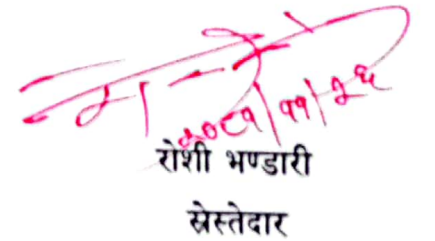 २०८१/११/२६
रोशी भण्डारी
स्रेस्तेदार